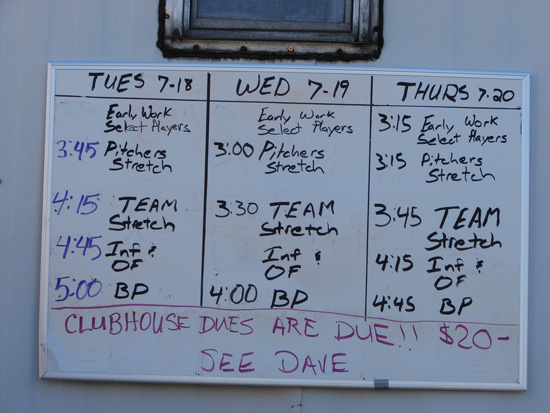 TUES 7-18
Early Work
Select Players
3:45 Pitchers
Stretch
4:15 TEAM
Stretch
4:45 Inf &
OF
5:00 BP
WED 7-19
Early Work
Select Players
3:00 Pitchers
Stretch
3:30 TEAM
Stretch
Inf &
OF
4:00 BP
THURS 7-20
3:15 Early Work
Select Players
3:15 Pitchers
Stretch
3:45 TEAM
Stretch
4:15 Inf &
OF
4:45 BP
CLUBHOUSE DUES ARE DUE!! $20-
SEE DAVE